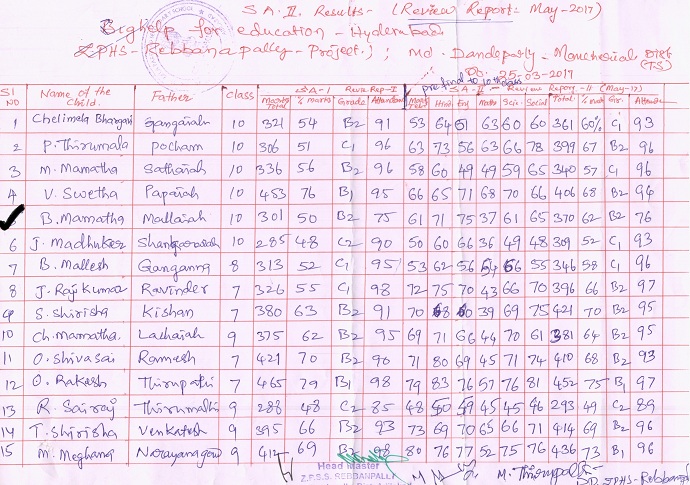 SA-II. Results- (Review Report: May-2017)
Bighelp for education - Hyderabad.
ZPHS-Rebbanapally-Project.); Md. Dandepally-Mancherial Dist (TS)
Dt. 25-03-2017
Sl No Name of the Child. Father Class SA-I Reva Rep-I SA-II- Review Report-II (May-17)
Marks Total % Marks Grade Attendance Hin Eng Maths Sci- Social Total % Mark Gr. Attend
1 Chelimela Bhargavi Gangaiah 10 321 54 B2 91 53 64 51 63 60 60 361 60% C1 93
2 P. Thirumala Pocham 10 306 51 C1 96 63 73 56 63 66 78 399 67 B2 96
3 M. Mamatha Sathaiah 10 336 56 B2 96 58 60 49 49 59 65 340 57 C1 96
4 V. Swetha Papaiah 10 453 76 B1 95 66 65 71 68 70 66 406 68 B2 94
B. Mamatha Mallaiah 10 301 50 B2 75 61 71 75 37 61 65 370 62 B2 76
6 J. Madhuker 10 285 48 C2 90 50 60 66 36 49 48 309 52 C1 93
7 B. Mallesh Ganganna 8 313 52 C1 95 53 62 56 54 66 55 346 58 C1 96
8 J. Raj Kumar Ravinder 7 326 55 C1 98 72 75 70 43 66 70 396 66 B2 97
9 S. Shirisha Kishan 7 380 63 B2 91 70 68 60 39 69 75 421 70 B2 95
10 Ch. Mamatha. Lachaiah 9 375 62 B2 95 69 71 66 44 70 61 381 64 B2 95
11 O. Shivasai Ramesh 7 421 70 B2 90 71 80 69 45 71 74 410 68 B2 93
12 O. Rakesh Thirupathi 7 465 79 B1 98 79 83 76 57 76 81 452 75 B1 97
13 R. Sairaj Thirumalli 9 288 48 C2 85 48 60 49 45 45 46 293 49 C2 89
14 T. Shirisha Venkatesh 9 395 66 B2 93 73 69 70 65 66 71 414 69 B2 96
15 M. Meghana Narayanagoud 9 412 69 B2 98 80 76 77 52 75 76 436 73 B1 96
Head Master
Z.P.S.S. REBBANPALLY
M. Thirupathi
ZPHS-Rebbanpally